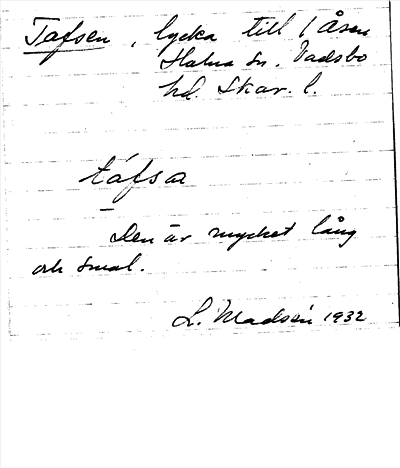 Tafsen, lycka till 1 Åsen
Halna sn. Vadsbo
hd. Skar. l.
táfsa
Den är mycket lång
och smal.
L. Madsén 1932